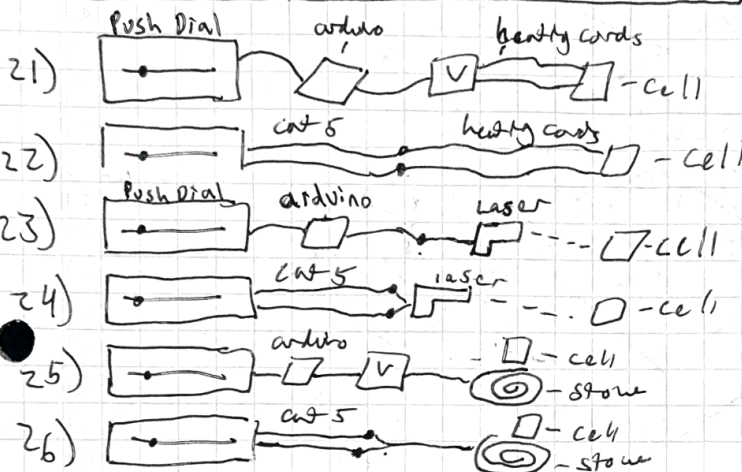 Push Dial arduino heating cords
21) V - cell
cat 5 heating cords
22) - cell
Push Dial arduino Laser
23) - cell
cat 5 laser
24) - cell
arduino
25) V - cell
- stove
cat 5
26) - cell
- stove